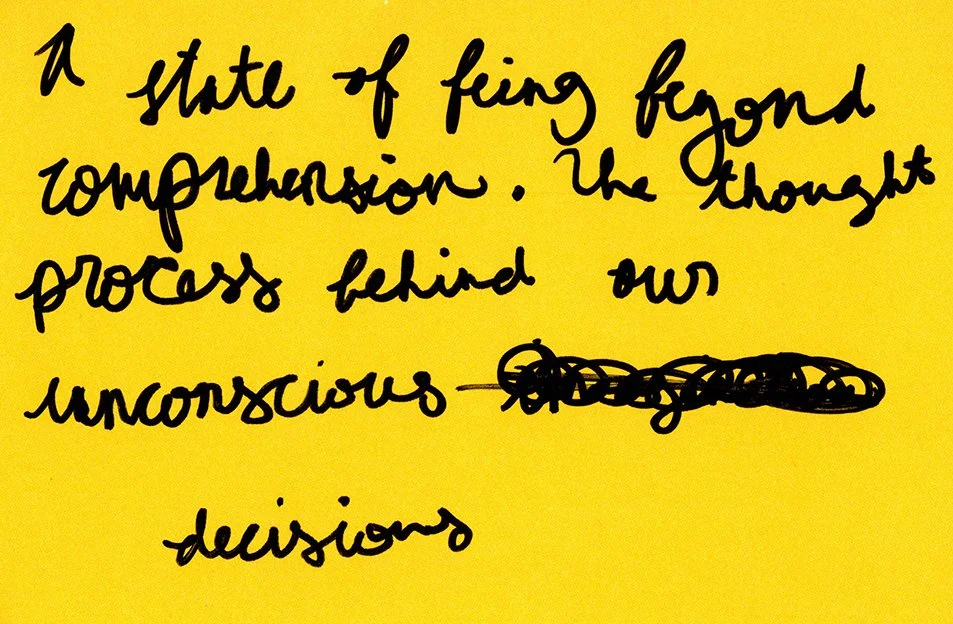 A state of being beyond
comprehension. The thought
process behind our
unconscious
decisions